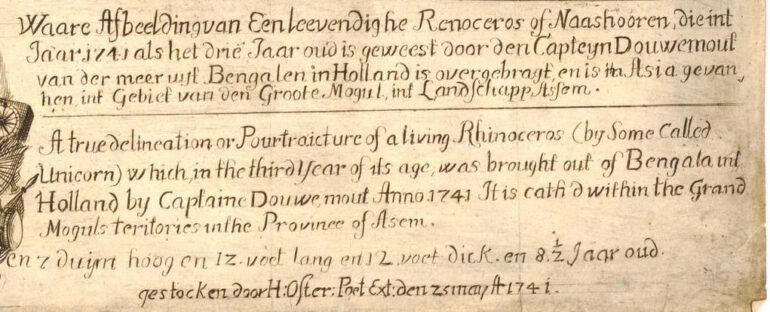 Waare Afbeelding van Een leevendighe Renoceros of Naashooren, die int
Jaar 1741 als het drie Jaar oud is geweest door den Capteyn Douwemout
van der meer uyt Bengalen in Holland is overgebragt, en is in Asia gevan
hen, int Gebiet van den Groote Mogul, int Landschapp Assem.
A true delineation or Pourtraicture of a living Rhinoceros (by Some Called
Unicorn) which, in the third Year of its age, was brought out of Bengala int
Holland by Captaine Douwe mout Anno 1741 It is cath'd within the Grand
Moguls teritories in the Province of Asem.
en 7 duijm hoog en 12. voet lang en 12. voet dick. en 8.½ Jaar oud.
gestocken door H: Oster: Poet Ext: den 25 may A 1741.